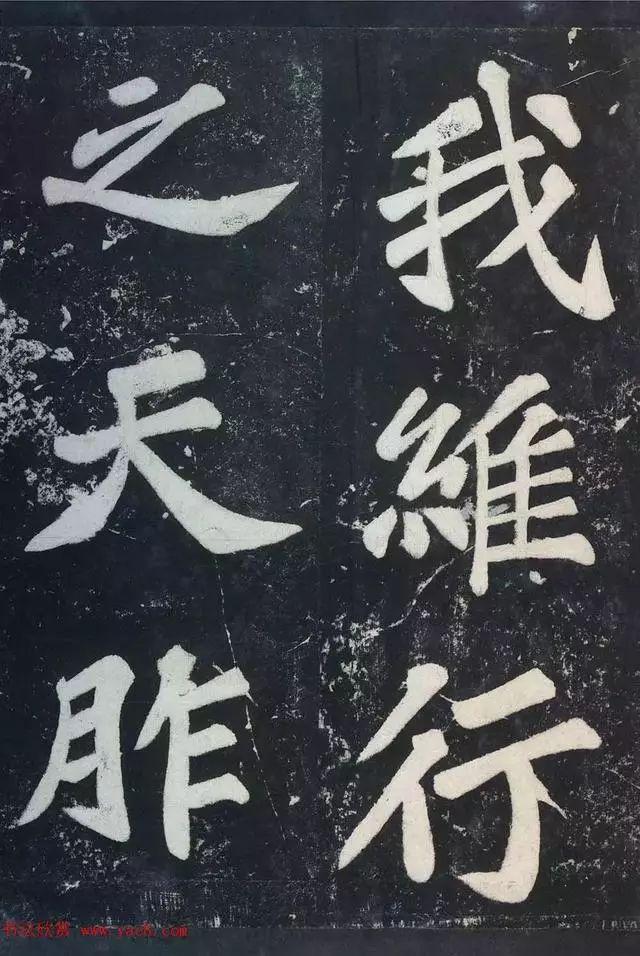 我維行
之天胙
书法欣赏 www.yac8.com